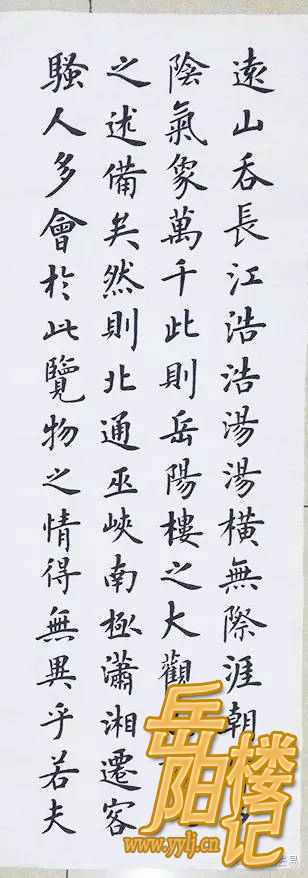 遠山吞長江浩浩湯湯橫無際涯朝
陰氣象萬千此則岳陽樓之大觀
之述備矣然則北通巫峽南極瀟湘遷客
騷人多會於此覽物之情得無異乎若夫
岳阳楼记
www.yylj.cn
易